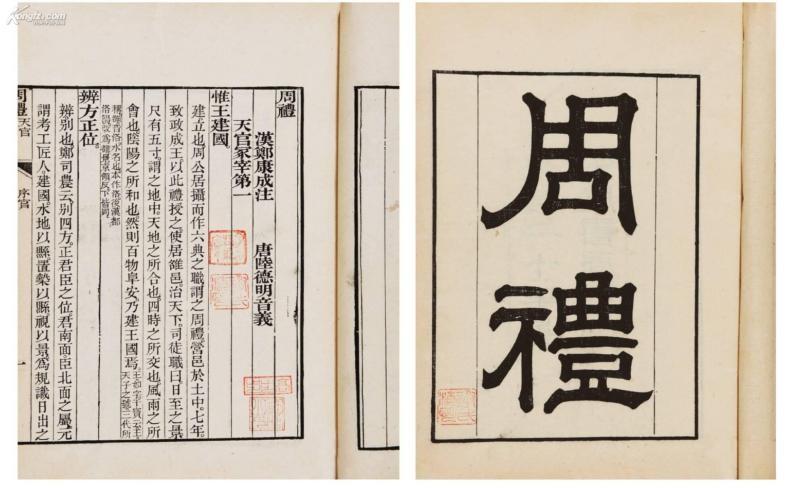 Kongfz.com
周禮
漢鄭康成注　唐陸德明音義
天官冢宰第一
惟王建國。
建立也周公居攝而作六典之職謂之周禮營邑於土中。七年。
致政成王以此禮授之使居雒邑治天下。司徒職曰日至之景
尺有五寸謂之地中天地之所合也四時之所交也風雨之所
會也陰陽之所和也然則百物阜安乃建王國焉。王如字干寶云王
天子之號三代所
稱雒音洛水名也本作洛後漢都
辨方正位。
辨別也鄭司農云別四方。正君臣之位君南面臣北面之屬。元
謂考工匠人建國水地以縣置槷以縣視以景爲規識日出之
周禮　天官　序官　一
周禮